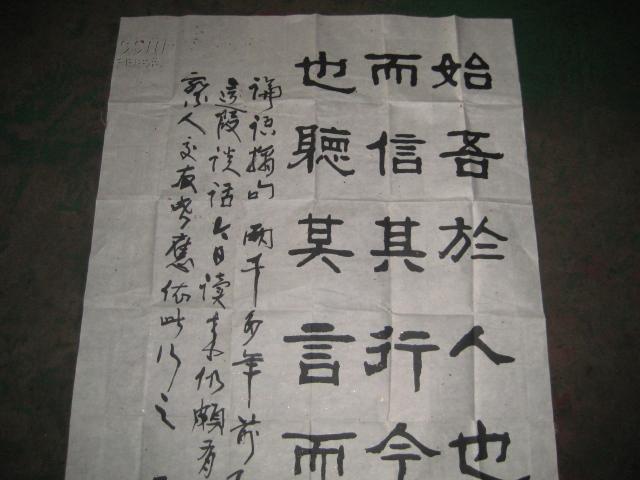 始吾於人也
而信其行今
也聽其言而
論語摘句兩千多年前
這段談話今日讀來仍頗有
察人交友皆應依此行之